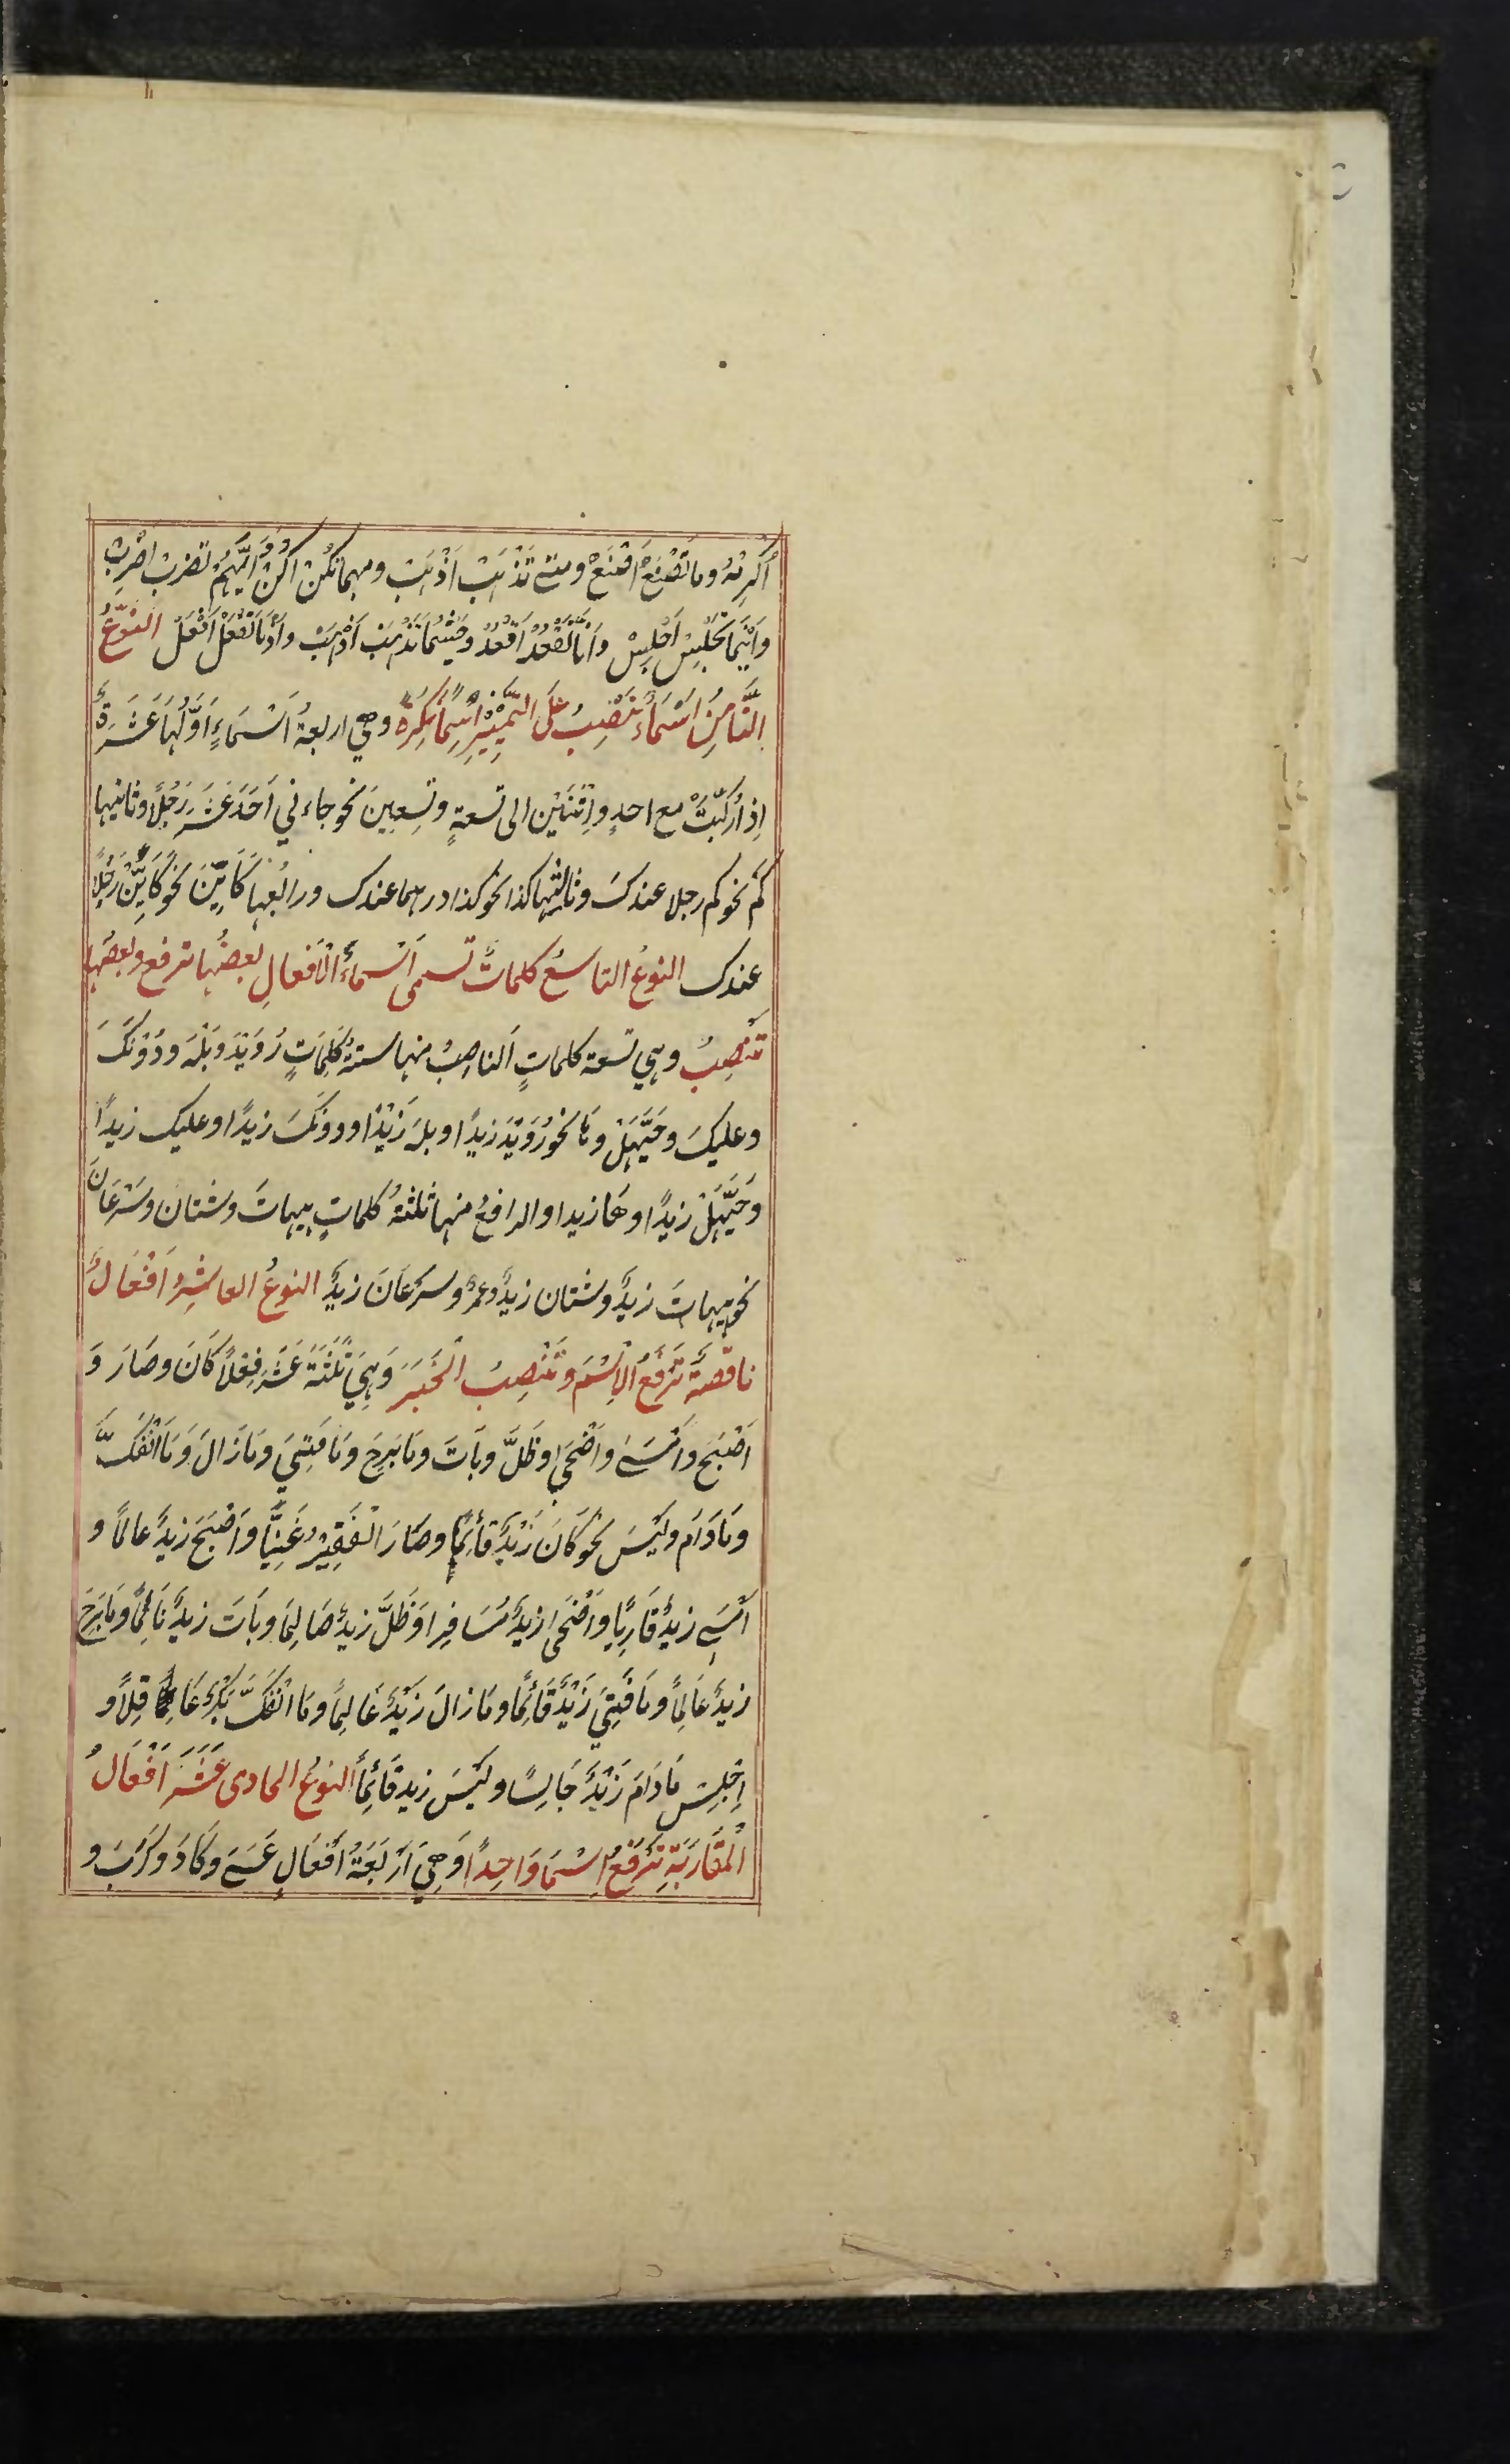 أُكْرِمْهُ وما تَصْنَعْ اَصْنَعْ ومتے تَذْهَبْ اَذْهَبْ ومهما تكُنْ اكُنْ وَاَيُّهُمْ تضرب اضْرِبْ
وَاَيْنَمَا تَجْلِسْ اَجْلِسْ وَاَنّٰى تَقْعُدْ اَقْعُدْ وحَيْثُمَا تَذْهَبْ اَذْهَبْ واِذْمَا تَفْعَلْ اَفْعَلْ النَّوْعُ
الثَّامِنُ اَسْمَاءٌ تَنْصِبُ عَلَى التَّمْيِيْزِ اِسْمًا نَكِرَةً وهي اربعةُ اَسْمَاءٍ اَوَّلُهَا عَشَرَةٌ
اِذا رُكِّبَتْ مع احدٍ واِثْنَيْنِ الى تسعةٍ وتِسعِينَ نحو جاءني اَحَدَ عَشَرَ رَجُلًا وثانيها
كَمْ نحو كم رجلا عندكَ وثالثها كذا نحو كذا درهما عندك ورابعُها كَاَيِّنْ نحوُ كَاَيِّنْ رَجُلًا
عندك النوعُ التاسعُ كلماتٌ تسمى اَسْماءُ الْاَفعالِ بعضُها ترفع وبعضُها
تَنْصِبُ وهي تسعة كلماتٍ اَلناصِبُ منها ستةُ كَلِمَاتٍ رُوَيْدَ وَبَلْهَ ودُوْنَكَ
وعليكَ وحَيَّهَلْ وهَا نحورُوَيْدَ زيدًا وبلهَ زَيْدًا ودونَكَ زيدًا وعليك زيدًا
وَحَيَّهَلْ زيدًا وهَا زيدا والرافعُ منها ثلثةُ كلماتٍ هيهاتَ وشتان وسَرْعَانَ
نحو هيهاتَ زيدٌ وشتان زيدٌ وعمرٌ وسرعَانَ زيدٌ النوعُ العاشِرُ اَفْعَالٌ
ناقصةٌ تَرْفَعُ الْاِسْمَ وتَنْصِبُ الْخَبَرَ وَهِيَ ثَلٰثَةَ عَشَرَ فِعْلًا كَانَ وصَارَ وَ
اَصْبَحَ واَمْسَےٰ واَضْحَى وظَلَّ وبَاتَ ومَا بَرِحَ ومَا فَتِئَ ومَا زَالَ وَمَا انْفَكَّ
ومَا دَامَ ولَيْسَ نحْوُ كَانَ زَيْدٌ قَائِمًا وصَارَ الْفَقِيْرُ غَنِيًّا واَصْبَحَ زيدٌ عالمًا و
اَمْسَےٰ زيدٌ قَارِيًا واَضْحَى زيدٌ مُسَافِرا وَظَلَّ زيدٌ صَائِمًا وبَاتَ زيدٌ نَائِمًا ومَا بَرِحَ
زيدٌ عَالِمًا ومَا فَتِئَ زَيْدٌ قَائِمًا ومَا زالَ زَيْدٌ عَالِمًا ومَا انْفَكَّ بَكْرٌ عَاقِلًا و
اِجْلِسْ مَا دَامَ زَيْدٌ جَالِسًا ولَيْسَ زيد قَائِمًا النوعُ الحادى عَشَرَ اَفْعَالُ
الْمُقَارَبَةِ تَرْفَعُ اِسْمًا وَاحِدًا وَهِيَ اَرْبَعَةُ اَفْعَالٍ عَسَےٰ وكَادَ وكَرَبَ و